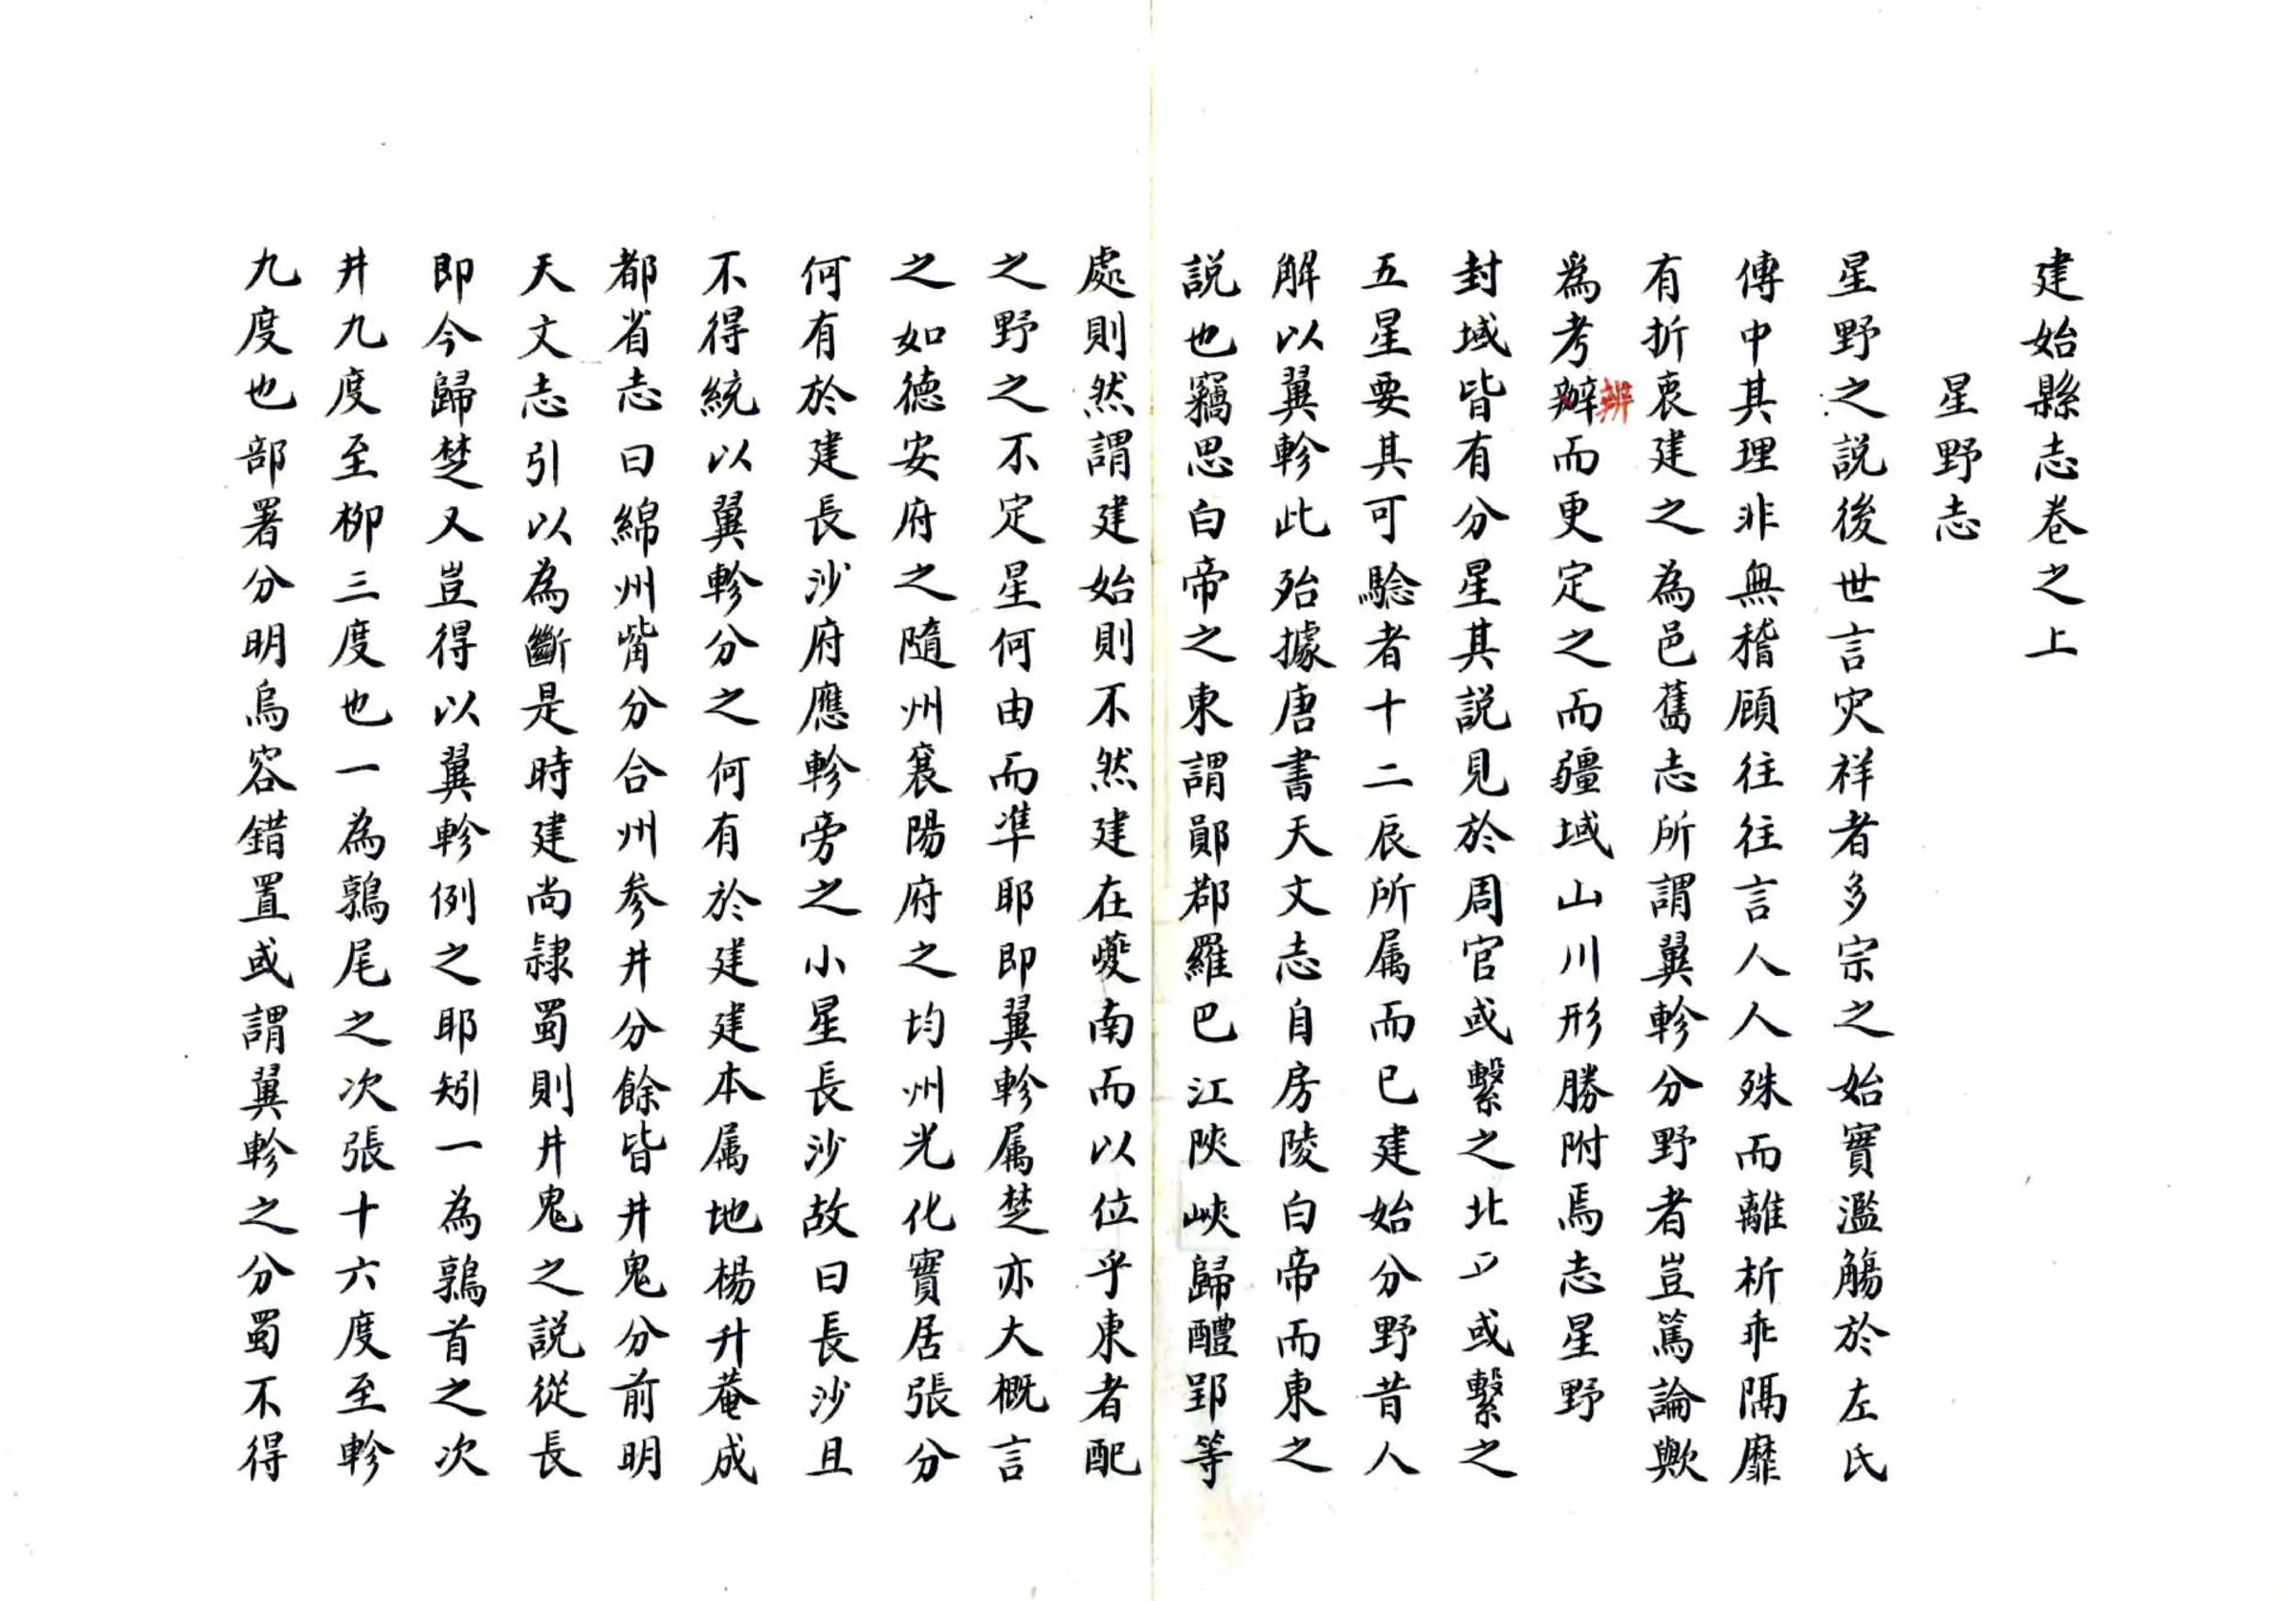 建始縣志卷之上
星野志
星野之説後世言灾祥者多宗之始實濫觴於左氏
傳中其理非無稽顧往往言人人殊而離析乖隔靡
有折衷建之為邑舊志所謂翼軫分野者豈篤論歟
為考辭辨而更定之而疆域山川形勝附焉志星野
封域皆有分星其説見於周官或繫之北斗或繫之
五星要其可驗者十二辰所属而已建始分野昔人
解以翼軫此殆據唐書天文志自房陵白帝而東之
説也竊思白帝之東謂鄖鄀羅巴江陝峽歸醴郢等
處則然謂建始則不然建在夔南而以位乎東者配
之野之不定星何由而準耶即翼軫属楚亦大概言
之如德安府之隨州襄陽府之均州光化實居張分
何有於建長沙府應軫旁之小星長沙故曰長沙且
不得統以翼軫分之何有於建建本属地楊升菴成
都省志曰綿州觜分合州参井分餘皆井鬼分前明
天文志引以為斷是時建尚隷蜀則井鬼之説從長
即今歸楚又豈得以翼軫例之耶矧一為鶉首之次
井九度至栁三度也一為鶉尾之次張十六度至軫
九度也部署分明烏容錯置或謂翼軫之分蜀不得